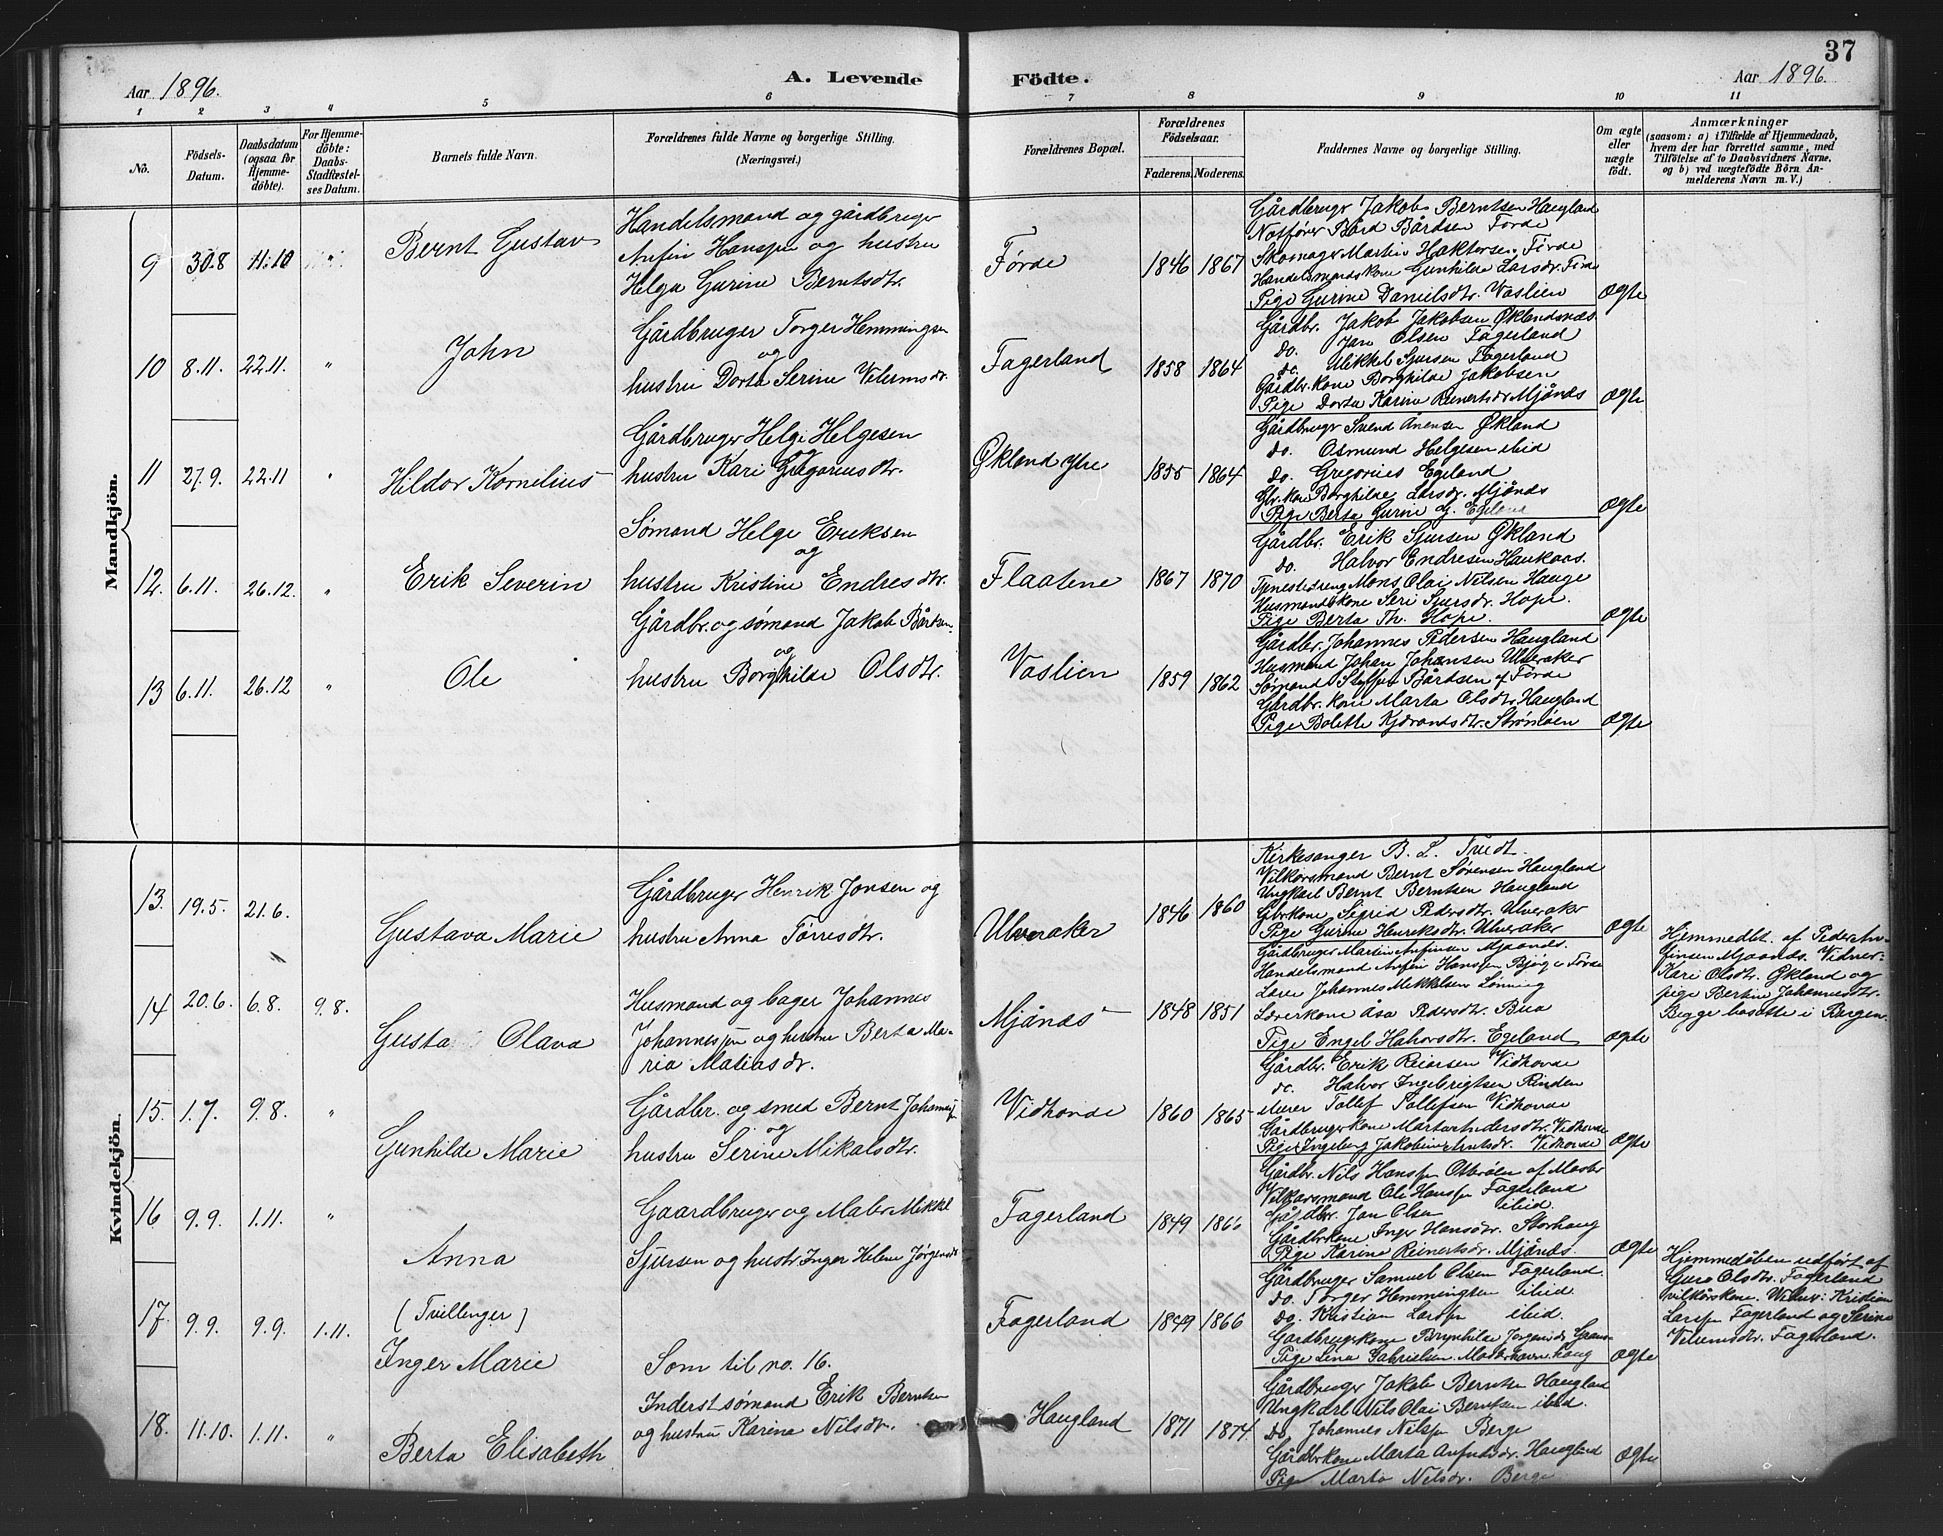 37
Aar 1896.
A. Levende Födte.
Aar 1896.
1 2 3 4 5 6 7 8 9 10 11
No.
Födsels-Datum.
Daabsdatum (ogsaa for Hjemmedöbte).
For Hjemmedöbte: Daabs-Stadfæstelses Datum.
Barnets fulde Navn.
Forældrenes fulde Navne og borgerlige Stilling. (Næringsvei.)
Forældrenes Bopæl.
Forældrenes Födselsaar.
Faderens. Moderens.
Faddernes Navne og borgerlige Stilling.
Om ægte eller uægte födt.
Anmærkninger
(saasom: a) i Tilfælde af Hjemmedaab, hvem der har forrettet samme, med Tilföielse af to Daabsvidners Navne, og b) ved uægtefödte Börn Anmelderens Navn m. V.)
Mandkjön.
9 30.8 11.10 "
Bernt Gustav
Handelsmand og gårdbruger
Anfin Hanssen og hustru
Helga Gurine Berntsdtr.
Førde
1846 1867
Gårdbruger Jakob Berntsen Haugland
Notfører Bård Bårdsen Førde
Skomager Martin Førde
Handelsmandskone Gunhilde Larsdr. Førde
Pige Gurine Danielsdtr. Vaslien
ægte
10 8.11. 22.11. "
John
Gårdbruger Torger Hemmingsen
og
hustru Dorta Serine Vilemsdr.
Fagerland
1858 1864
Gårdbr. Jakob Jakobsen Øklandsnæs
do. Jan Olsen Fagerland
do. Mikkel Sjursen Fagerland
Gårdbr.kone Borghilde Jakobsen
Pige Dorta Karine Reinertsdr. Mjånds
ægte
11 27.9. 22.11 "
Hildor Kornelius
Gårdbruger Helge Helgesen
og
hustru Kari Gregoriusdtr.
Økland ytre
1855 1864
Gårdbruger Svend Ånensen Økland
do. Osmund Helgesen ibid
do. Gregorius Egeland
Gbr.kone Borghilde Larsdr. Mjånds
Pige Berta Gurine G. Egeland
ægte
12. 6.11. 26.12. "
Erik Severin
Sømand Helge Eriksen
og
hustru Kristine Endresdtr.
Flaatene
1867 1870
Gårdbr. Erik Sjursen Økland
do. Halvor Endresen Haukaas.
Tjenestedreng Mons Olai Nilsen Hauge
Husmandskone Seri Sjursdr. Hope.
Pige Berta Th. Hope.
ægte
13 6.11. 26.12 "
Ole
Gårdbr. og sømand Jakob Bårdsen
og
hustru Borghilde Olsdtr.
Vaslien
1859 1862
Gårdbr. Johannes Pedersen Haugland
Husmand Johan Johansen Ulveraker
Sømand Bårdsen af Førde
Gårdbr. kone Marta Olsdtr. Haugland
Pige Bolette Kjørandsdtr. Strømøen
ægte
Kvindekjön.
13. 19.5. 21.6.
Gustava Marie
Gårdbruger Henrik Jonsen og
hustru Anna Tørresdtr.
Ulveraker
1846 1860
Kirkesanger B. L. Tvedt.
Vilkårsmand Bernt Sørensen Haugland
Ungkarl Bernt Berntsen Haugland
Gbrkone Sigrid Pedersdtr. Ulveraker
Pige Gurine Henriksdtr. Ulveraker
ægte
14 20.6. 6.8. 9.8.
Gusta Olava
Husmand og bager Johannes
Johannessen og hustru Berta Ma-
ria Matiasdr.
Mjånds
1848 1851
Gårdbruger Martin Anfinsen Mjaands.
Handelsmand Anfin Hanssen Førde
Lærer Johannes Mikkelsen Lønning
Lærerkone Åsa Pedersdtr. Bua
Pige Engel Egeland
ægte
Hjemmedbt. af Peder An-
finsen Mjaands. Vidner:
Kari Olsdtr. Økland og
pige Bertine Johannesdtr.
Begge bosatte i Bergen.
15. 1.7. 9.8. "
Gunhilde Marie
Gårdbr. og smed Bernt Johannessen
og
hustru Serine Mikalsdtr.
Vidhovde
1860 1865
Gårdbr. Erik Reiersen Vidhovde
do. Halvor Ingebrigtsen Rinden
Murer Tollef Tollefsen Vidhovde
Gårdbrugerkone Marta Andersdtr. Vidhovde
Pige Ingeborg Jakobine Arntsdr. Vidhovde
ægte
16 9.9. 1.11. "
Anna
Gaardbruger og Maler Mikkel
Sjursen og hustr. Inger Helene Jørgensdtr.
Fagerland
1849 1866
Gårdbr. Nils Hanssen
Vilkårsmand Ole Hanssen Fagerland
Gårdbr. Jan Olsen ibid.
Gårdbrkone Inger Hansdtr. Storhaug
Pige Karina Reinertsdr. Mjånds.
ægte
17. 9.9. 9.9. 1.11.
(Tvillinger)
Inger Marie
Som til no. 16.
Fagerland
1849 1866
Gårdbruger Samuel Olsen Fagerland.
do. Torger Hemmingsen ibid.
do. Kristian Larssen ibid.
Gårdbrugerkone Brynhilde
Pige Lina Gabrielsen
ægte
Hjemmedåben udført af
Guro Olsdtr. Fagerland
vilkårskone. Vidner: Kristian
Larssen Fagerland og Serine
Vilumsdtr. Fagerland.
18. 11.10. 1.11. "
Berta Elisabeth
Inderst sømand Erik Berntsen
og hustru Karina Nilsdr.
Haugland
1871 1874.
Gårdbruger Jakob Berntsen Haugland
Ungkarl Nils Olai Berntsen ibid.
do. Johannes Nilssen Berge
Gårdbrkone Marta Haugland
Pige Marta Nilsdr. Berge
ægte